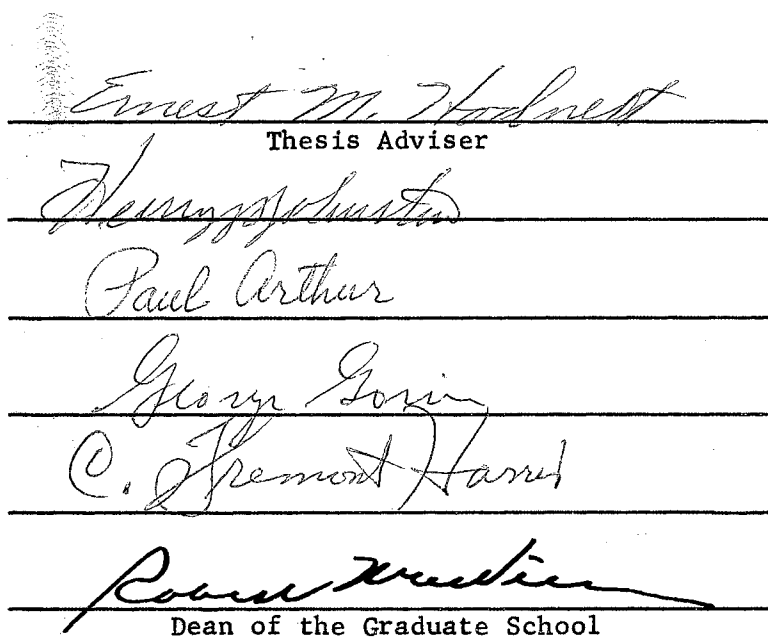 Ernest M. Hodnett
Thesis Adviser
Henry Johnston
Paul Arthur
George Gorin
C. Fremont Harris
Robert
Dean of the Graduate School